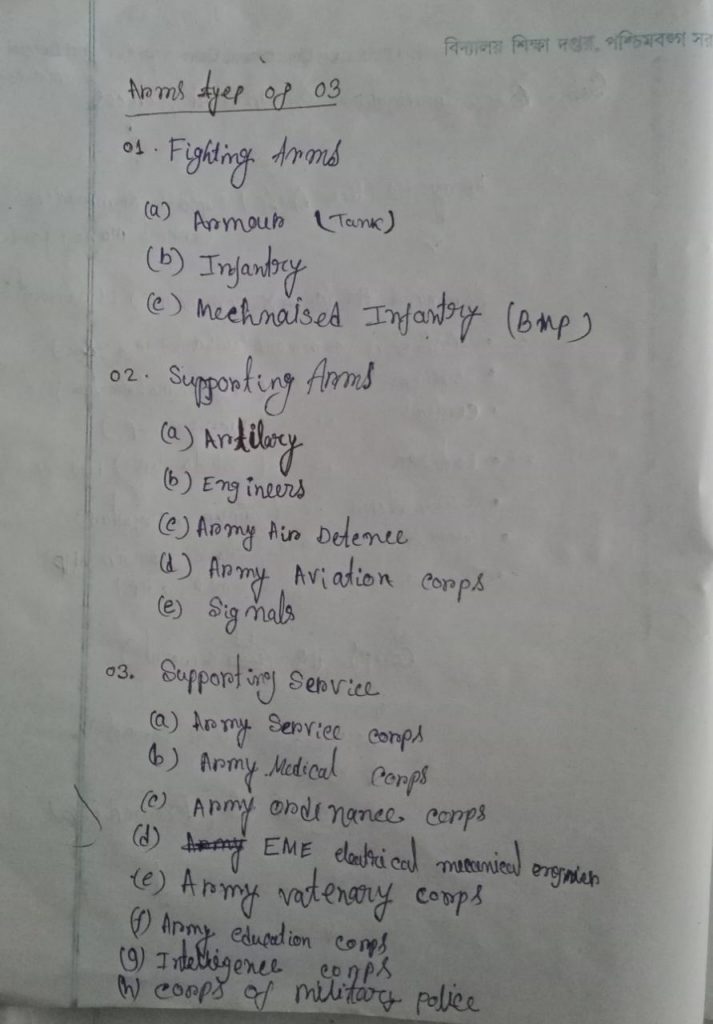 বিদ্যালয় শিক্ষা দপ্তর, পশ্চিমবঙ্গ সর
Arms types of 03
01. Fighting Arms
(a) Armour (Tank)
(b) Infantry
(c) Mechnaised Infantry (BMP)
02. Supporting Arms
(a) Artilary
(b) Engineers
(c) Army Air Defence
(d) Army Aviation corps
(e) Signals
03. Supporting Service
(a) Army Service corps
(b) Army Medical corps
(c) Army ordenance corps
(d) Army EME electrical mecanical
(e) Army vatenary corps
(f) Army education corps
(g) Intelligence corps
(h) corps of military police